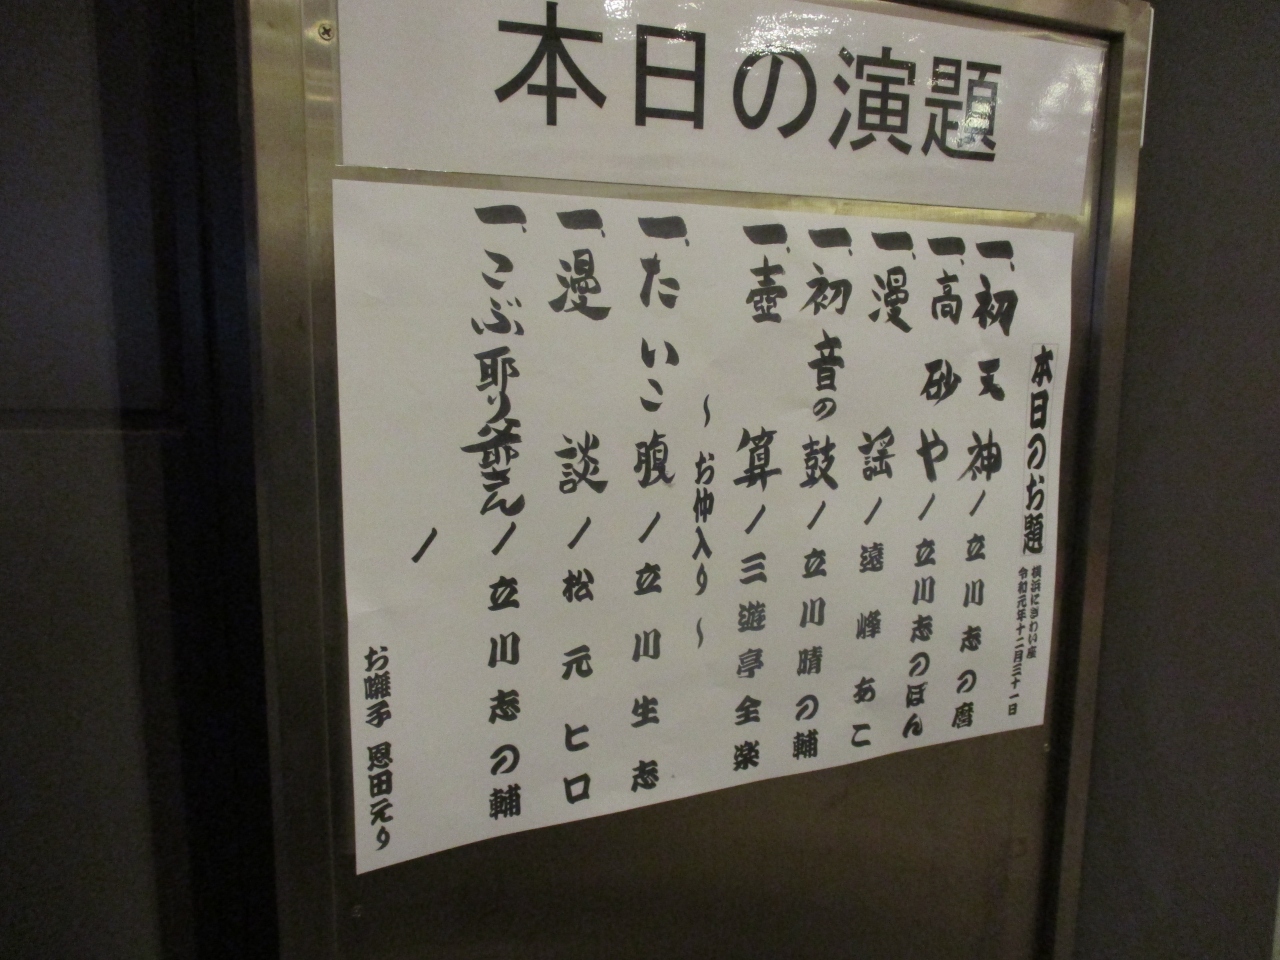 本日の演題
本日のお題
横浜にぎわい座
令和元年十二月三十一日
一、初天神/立川志の麿
一、高砂や/立川志のぽん
一、漫謡/遠峰あこ
一、初音の鼓/立川晴の輔
一、壺算/三遊亭全楽
〜お仲入り〜
一、たいこ腹/立川生志
一、漫談/松元ヒロ
一、こぶ取り爺さん/立川志の輔
/
お囃子 恩田えり